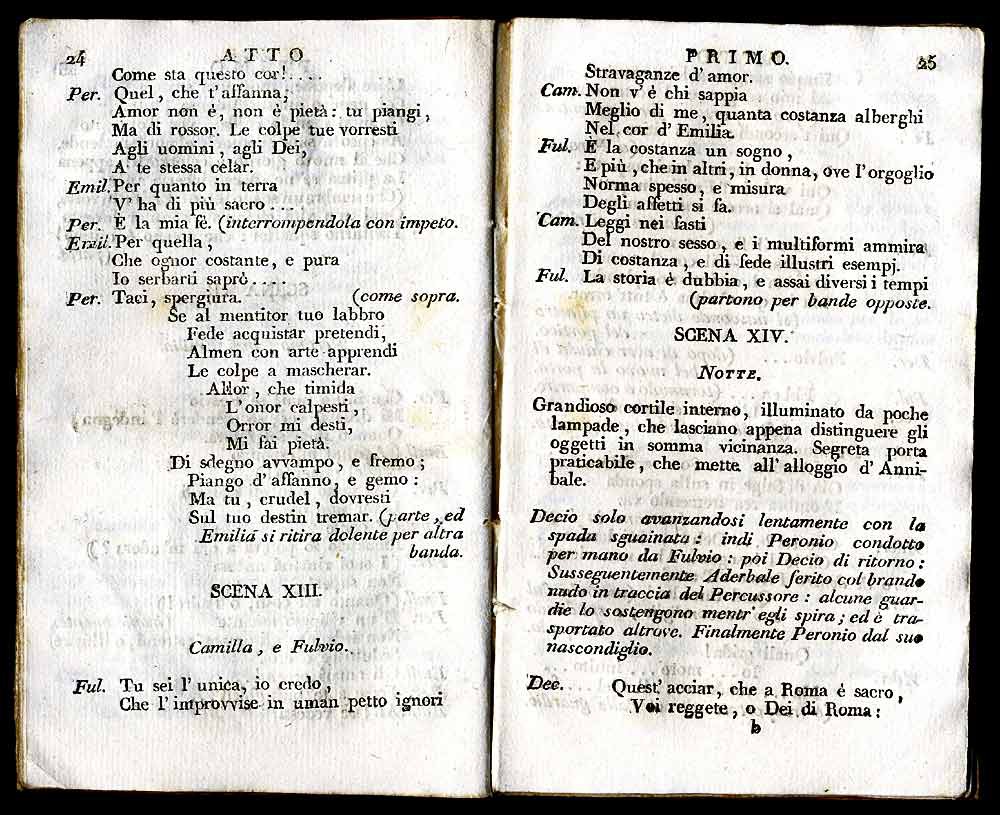 24 ATTO
Come sta questo cor!....
Per. Quel, che t'affanna,
Amor non é, non è pietà: tu piangi,
Ma di rossor. Le colpe tue vorresti
Agli uomini, agli Dei,
A te stessa celar.
Emil. Per quanto in terra
V'ha di più sacro....
Per. È la mia fè. (interrompendola con impeto.
Emil. Per quella,
Che ognor costante, e pura
Io serbarti saprò....
Per. Taci, spergiura. (come sopra.
Se al mentitor tuo labbro
Fede acquistar pretendi,
Almen con arte apprendi
Le colpe a mascherar.
Allor, che timida
L'onor calpesti,
Orror mi desti,
Mi fai pietà.
Di sdegno avvampo, e fremo;
Piango d'affanno, e gemo:
Ma tu, crudel, dovresti
Sul tuo destin tremar. (parte, ed
Emilia si ritira dolente per altra
banda.
SCENA XIII.
Camilla, e Fulvio.
Ful. Tu sei l'unica, io credo,
Che l'improvvise in uman petto ignori
PRIMO. 25
Stravaganze d'amor.
Cam. Non v'é chi sappia
Meglio di me, quanta costanza alberghi
Nel cor d'Emilia.
Ful. È la costanza un sogno,
E più, che in altri, in donna, ove l'orgoglio
Norma spesso, e misura
Degli affetti si fa.
Cam. Leggi nei fasti
Del nostro sesso, e i multiformi ammira
Di costanza, e di fede illustri esempj.
Ful. La storia è dubbia, e assai diversi i tempi
(partono per bande opposte.
SCENA XIV.
NOTTE.
Grandioso cortile interno, illuminato da poche
lampade, che lasciano appena distinguere gli
oggetti in somma vicinanza. Segreta porta
praticabile, che mette all'alloggio d'Anni-
bale.
Decio solo avanzandosi lentamente con la
spada sguainata: indi Peronio condotto
per mano da Fulvio: poi Decio di ritorno:
Susseguentemente Aderbale ferito col brando
nudo in traccia del Percussore: alcune guar-
die lo sostengono mentr'egli spira; ed è tra-
sportato altrove. Finalmente Peronio dal suo
nascondiglio.
Dec. Quest'acciar, che a Roma è sacro,
Voi reggete, o Dei di Roma:
b